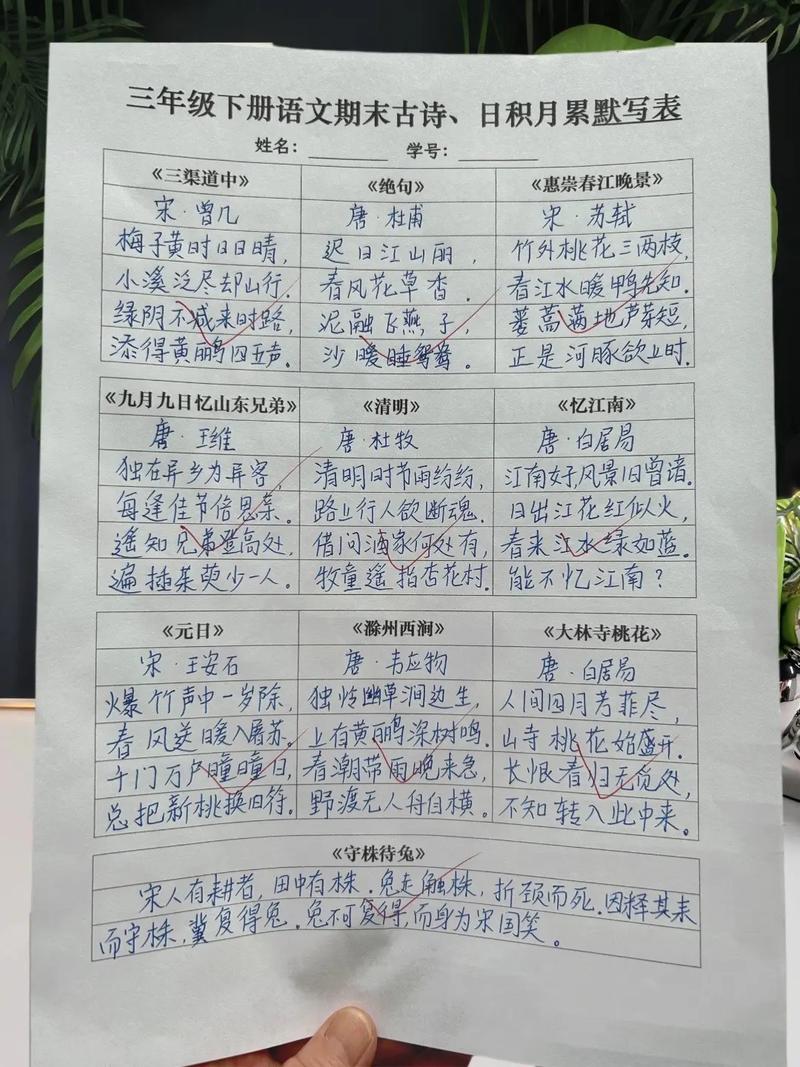 三年级下册语文期末古诗、日积月累默写表
姓名：________ 学号：________
《三渠道中》
宋·曾几
梅子黄时日日晴，
小溪泛尽却山行.
绿阴不减来时路，
添得黄鹂四五声.
《绝句》
唐·杜甫
迟日江山丽，
春风花草香.
泥融飞燕子，
沙暖睡鸳鸯。
《惠崇春江晚景》
宋·苏轼
竹外桃花三两枝，
春江水暖鸭先知.
蒌蒿满地芦芽短，
正是河豚欲上时.
《九月九日忆山东兄弟》
唐·王维
独在异乡为异客，
每逢佳节倍思亲.
遥知兄弟登高处，
遍插茱萸少一人.
《清明》
唐·杜牧
清明时节雨纷纷，
路上行人欲断魂.
借问酒家何处有，
牧童遥指杏花村.
《忆江南》
唐·白居易
江南好，风景旧曾谙.
日出江花红似火，
春来江水绿如蓝.
能不忆江南？
《元日》
宋·王安石
爆竹声中一岁除，
春风送暖入屠苏.
千门万户曈曈日，
总把新桃换旧符.
《滁州西涧》
唐·韦应物
独怜幽草涧边生，
上有黄鹂深树鸣.
春潮带雨晚来急，
野渡无人舟自横.
《大林寺桃花》
唐·白居易
人间四月芳菲尽，
山寺桃花始盛开.
长恨春归无觅处，
不知转入此中来。
《守株待兔》
宋人有耕者，田中有株.兔走触株，折颈而死.因释其耒
而守株，冀复得兔.兔不可复得，而身为宋国笑。